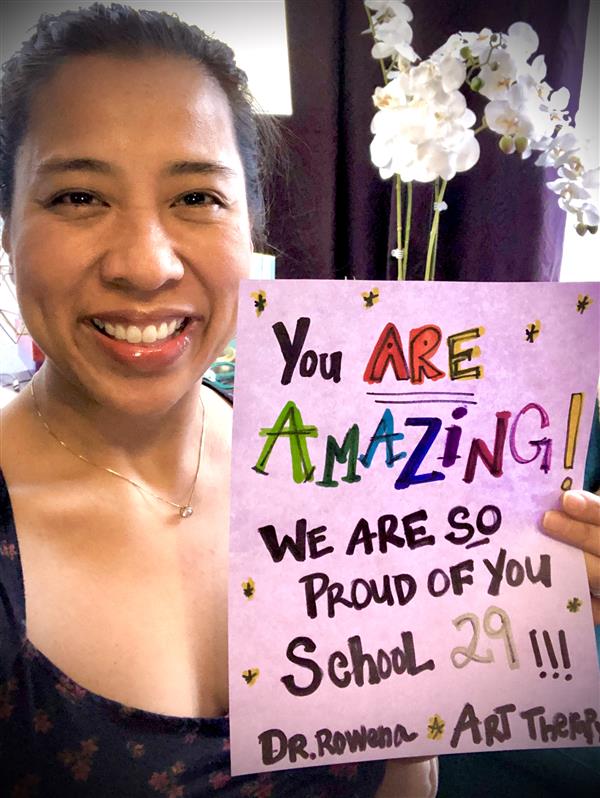 You ARE
AMAZiNG!
WE ARE SO
PROUD OF YOU
SchooL 29!!!
DR. Rowena ★ ART Therapy